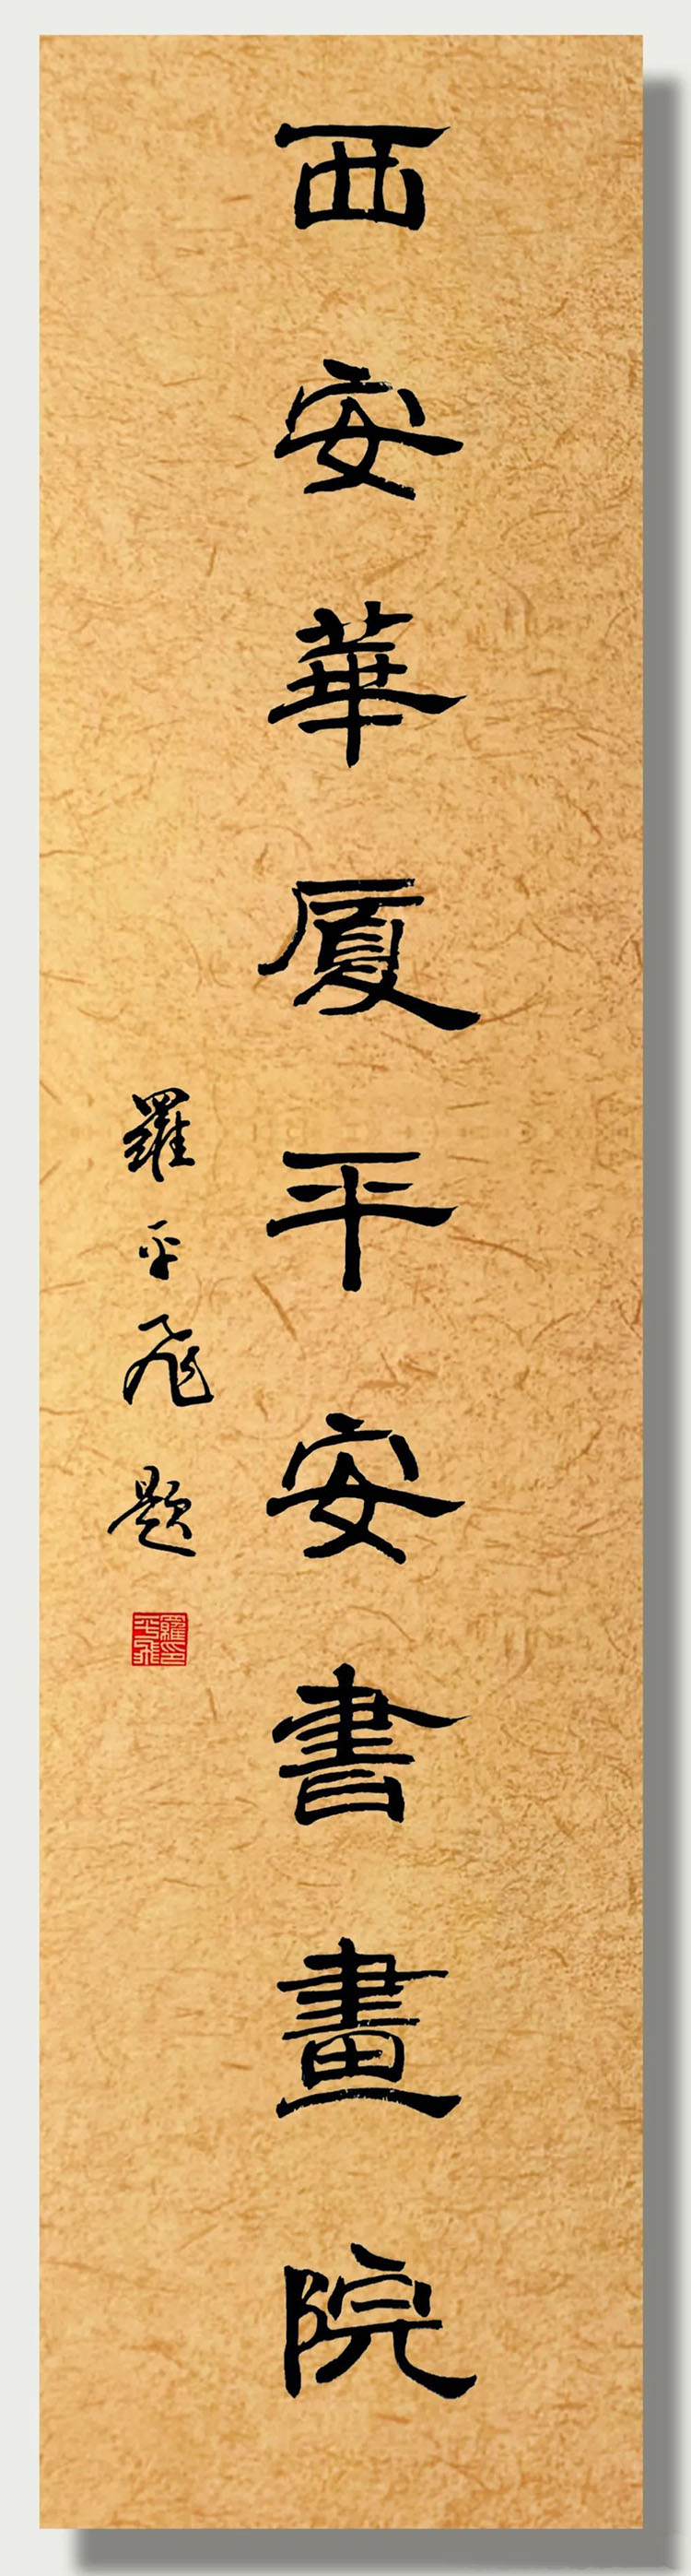 西安華厦平安書畫院
羅平飛題
羅平飛印